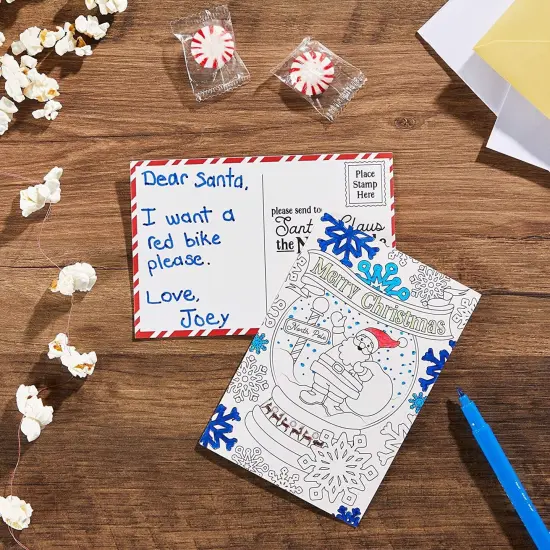 Dear Santa,
I want a
red bike
please.
Love,
Joey
Place
Stamp
Here
please send to:
the
Merry Christmas
North Pole